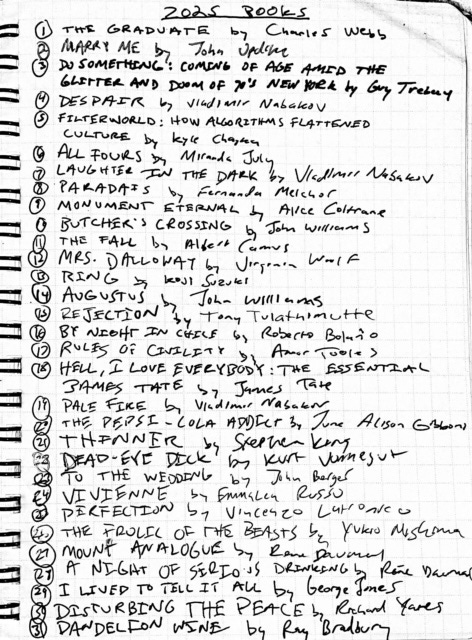 2025 BOOKS
① THE GRADUATE by Charles Webb
② MARRY ME by John Updike
③ DO SOMETHING: COMING OF AGE AMID THE
GLITTER AND DOOM OF 70'S NEW YORK by Guy Trebay
④ DESPAIR by Vladimir Nabakov
⑤ FILTERWORLD: HOW ALGORITHMS FLATTENED
CULTURE by Kyle Chayka
⑥ ALL FOURS by Miranda July
⑦ LAUGHTER IN THE DARK by Vladimir Nabakov
⑧ PARADAIS by Fernanda Melchor
⑨ MONUMENT ETERNAL by Alice Coltrane
⑩ BUTCHER'S CROSSING by John Williams
⑪ THE FALL by Albert Camus
⑫ MRS. DALLOWAY by Virginia Woolf
⑬ RING by Koji Suzuki
⑭ AUGUSTUS by John Williams
⑮ REJECTION by Tony Tulathimutte
⑯ BY NIGHT IN CHILE by Roberto Bolaño
⑰ RULES OF CIVILITY by Amor Towles
⑱ HELL, I LOVE EVERYBODY: THE ESSENTIAL
JAMES TATE by James Tate
⑲ PALE FIRE by Vladimir Nabakov
⑳ THE PEPSI-COLA ADDICT by June Alison Gibbons
㉑ THINNER by Stephen King
㉒ DEAD-EYE DICK by Kurt Vonnegut
㉓ TO THE WEDDING by John Berger
㉔ VIVIENNE by Emmalea Russo
㉕ PERFECTION by Vincenzo Latronico
㉖ THE FROLIC OF THE BEASTS by Yukio Mishima
㉗ MOUNT ANALOGUE by Rene Daumal
㉘ A NIGHT OF SERIOUS DRINKING by Rene Daumal
㉙ I LIVED TO TELL IT ALL by George Jones
㉚ DISTURBING THE PEACE by Richard Yates
㉛ DANDELION WINE by Ray Bradbury